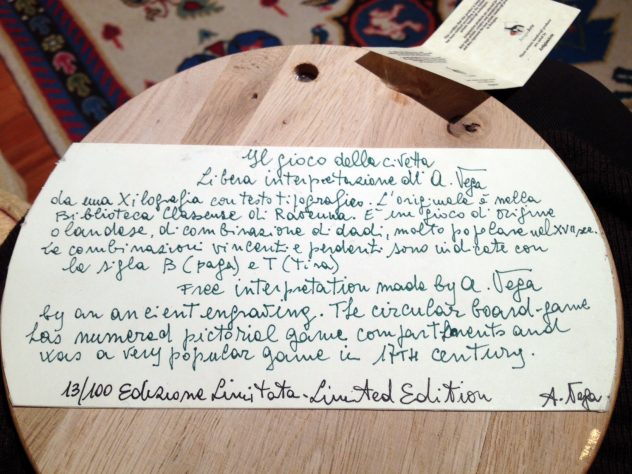 Il gioco della civetta
Libera interpretazione di A. Vega
da una Xilografia con testo tipografico. L'originale è nella
Biblioteca Classense di Ravenna. E' un gioco di origine
olandese, di combinazione di dadi, molto popolare nel XVII sec.
Le combinazioni vincenti e perdenti sono indicate con
la sigla B (paga) e T (tira)
Free interpretation made by A. Vega
by an ancient engraving. The circular board-game
has numerad pictorial game compartments and
was a very popular game in 17TH century.
13/100 Edizione Limitata - Limited Edition A. Vega